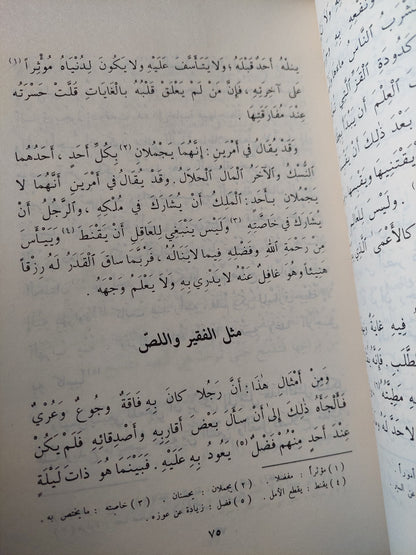 ينله أحد قبله؛ ولا يتأسف عليه ولا يكون لدنياه مؤثراً (١)
على آخرته، فإن من لم يعلق قلبه بالغايات قلت حسرته
عند مفارقتها
وقد يقال في أمرين: إنهما يجملان (٢) بكل أحد، أحدهما
النسك والآخر المال الحلال. وقد يقال في أمرين إنهما لا
يجملان بأحد: الملك أن يشارك في ملكه، والرجل أن
يشارك في خاصته (٣) وليس ينبغي للعاقل أن يقنط (٤) وييأس
من رحمة الله وفضله فيما لا يناله، فربما ساق القدر له رزقاً
هنيئاً وهو غافل عنه لا يدري به ولا يعلم وجهه.
مثل الفقير واللص
ومن أمثال هذا: أن رجلا كان به فاقة وجوع وعري
فألجأه ذلك إلى أن سأل بعض أقاربه وأصدقائه فلم يكن
عند أحد منهم فضل (٥) يعود به عليه. فبينما هو ذات ليلة
(١) مؤثراً: مفضلا. (٢) يجملان: يحسنان. (٣) خاصته: ما يختص به.
(٤) يقنط: يقطع الأمل. (٥) فضل: زيادة عن عوزه.
٧٥